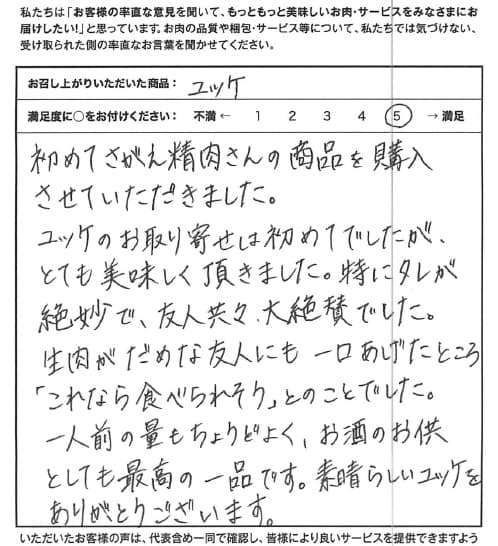 私たちは「お客様の率直な意見を聞いて、もっともっと美味しいお肉・サービスをみなさまにお
届けしたい!」と思っています。お肉の品質や梱包・サービス等について、私たちでは気づけない、
受け取られた側の率直なお言葉を聞かせてください。
お召し上がりいただいた商品: ユッケ
満足度に○をお付けください: 不満 ← 1 2 3 4 5 → 満足
初めてさがえ精肉さんの商品を購入
させていただきました。
ユッケのお取り寄せは初めてでしたが、
とても美味しく頂きました。特にタレが
絶妙で、友人共々、大絶賛でした。
生肉がだめな友人にも一口あげたところ
「これなら食べられそう」とのことでした。
一人前の量もちょうどよく、お酒のお供
としても最高の一品です。素晴らしいユッケを
ありがとうございます。
いただいたお客様の声は、代表含め一同で確認し、皆様により良いサービスを提供できますよう